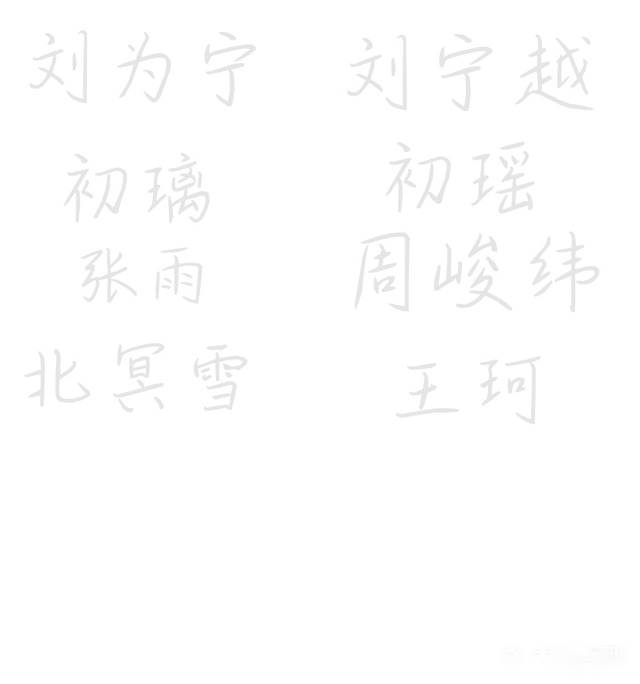 刘为宁 刘宁越
初璃 初瑶
张雨 周峻纬
北冥雪 王珂